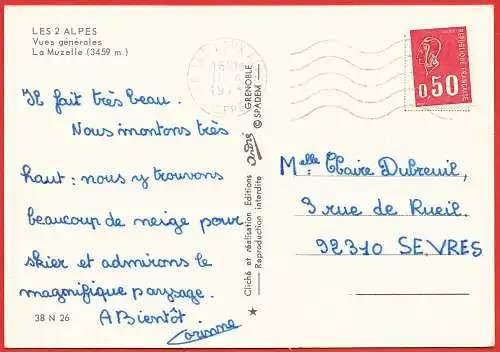 LES 2 ALPES
Vues générales
La Muzelle (3459 m.)
Il fait très beau.
Nous montons très
haut : nous y trouvons
beaucoup de neige pour
skier et admirons le
magnifique paysage.
A Bientôt
Corinne
38 N 26
Cliché et réalisation Editions
Reproduction interdite
GRENOBLE
© SPADEM
★
0,50
REPUBLIQUE FRANCAISE
Melle Claire Dubreuil,
9 rue de Rueil.
92310 SEVRES